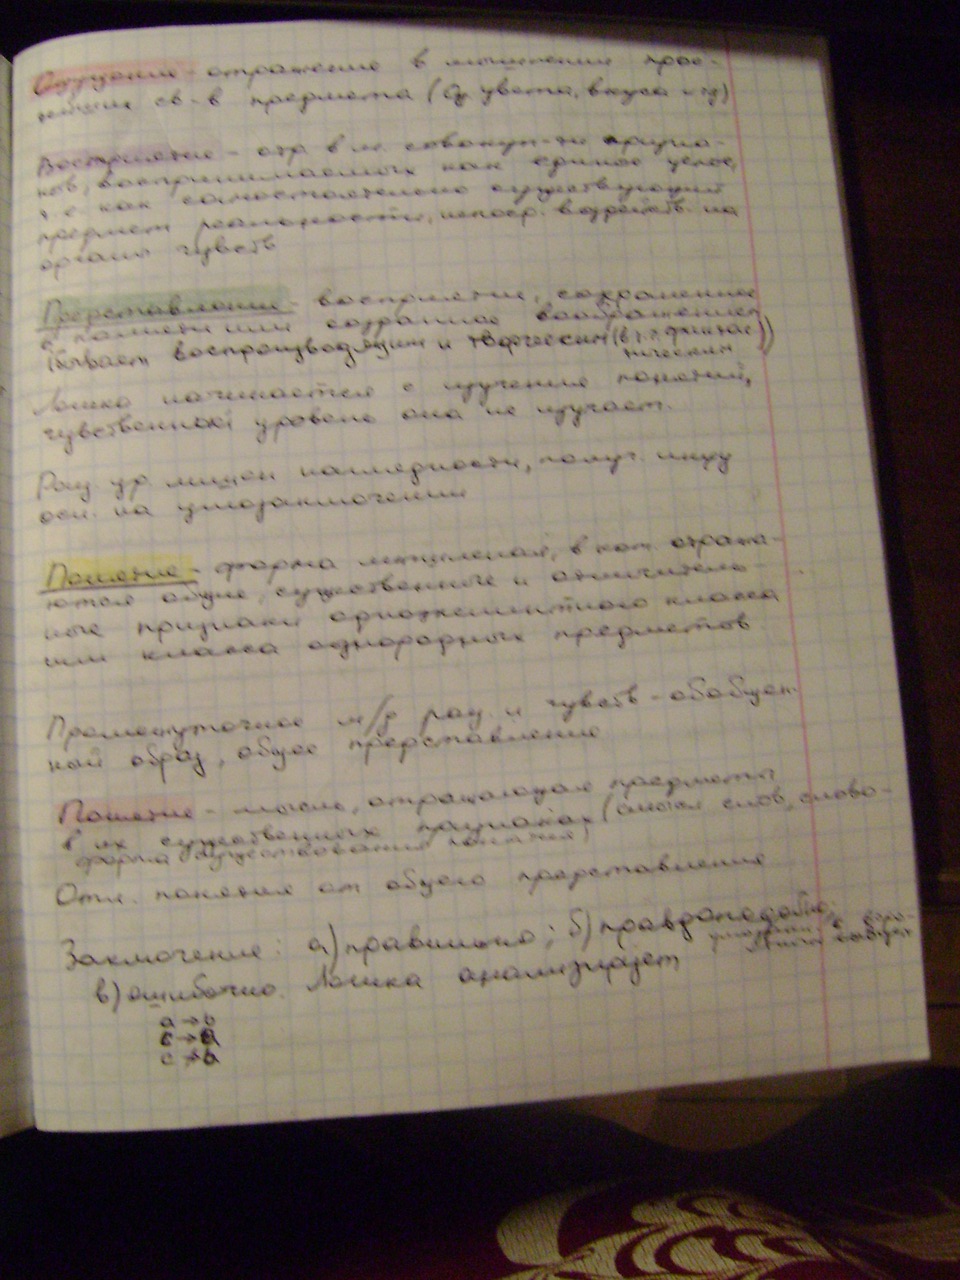 Ощущение - отражение в мышлении прос-
тейших св-в предмета (Ощ. цвета, вкуса и тд)
Восприятие - отр. в м. совокуп-ти призна-
ков, воспринимаемых как единое целое,
т.е. как самостоятельно существующий
предмет реальности, непоср. воздейств. на
органы чувств
Представление - восприятие, сохраненное
в памяти или созданное воображением
(бывает воспроизводящим и творческим (в т.ч. фантас
тическим))
Логика начинается с изучения понятий,
чувственный уровень она не изучает.
Рац. ур. лишен наглядности, получ. инфу
осн. на умозаключении
Понятие - форма мышления, в кот. отража-
ются общие, существенные и отличитель-
ные признаки одноэлементного класса
или класса однородных предметов
Промежуточное м/д рац. и чувств - обобщен-
ный образ, общее представление
Понятие - мысль, отражающая предметы
в их существенных признаках (смысл слов, слово-
форма существования понятия)
Отл. понятия от общего представления
Заключение: а) правильно; б) правдоподобно;
в) ошибочно. Логика анализирует
a → b
c → a
c → b